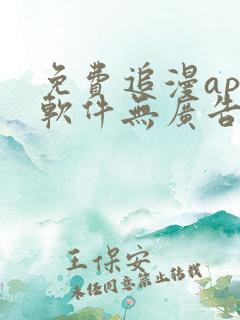 免費追漫ap
軟件無廣告
王保安
未經同意禁止轉載